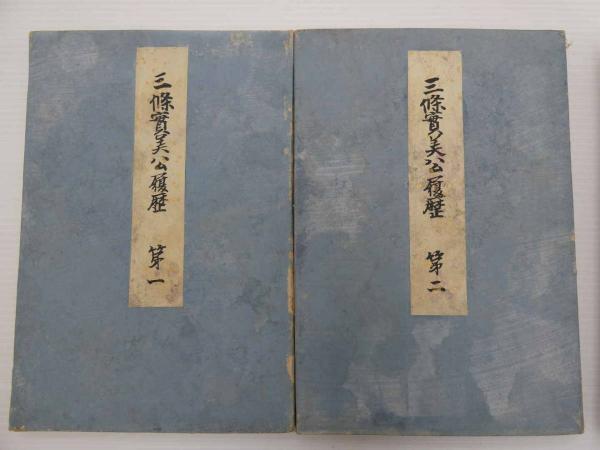 三條實美公履歴 第一
三條實美公履歴 第二